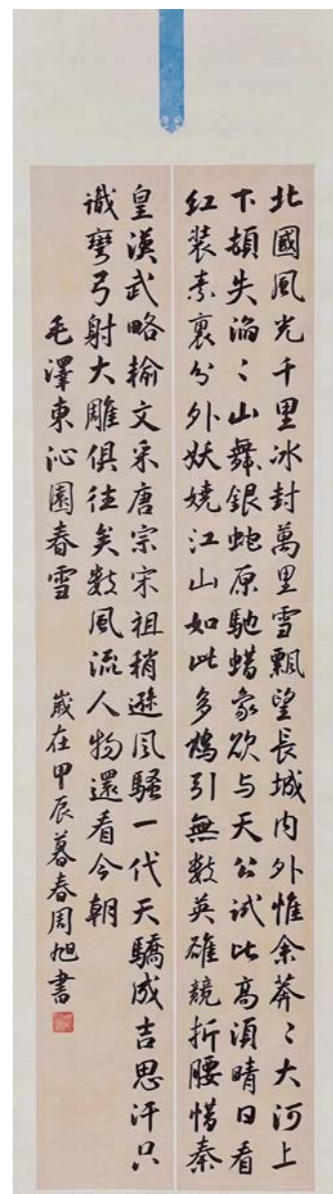 北國風光千里冰封萬里雪飄望長城内外惟余莽〻大河上
下頓失滔〻山舞銀蛇原馳蜡象欲与天公試比高須晴日看
红装素裹分外妖娆江山如此多嬌引無数英雄競折腰惜秦
皇漢武略輸文采唐宗宋祖稍遜风騷一代天驕成吉思汗只
識彎弓射大雕俱往矣数風流人物還看今朝
毛澤東沁園春雪 歲在甲辰暮春周旭書